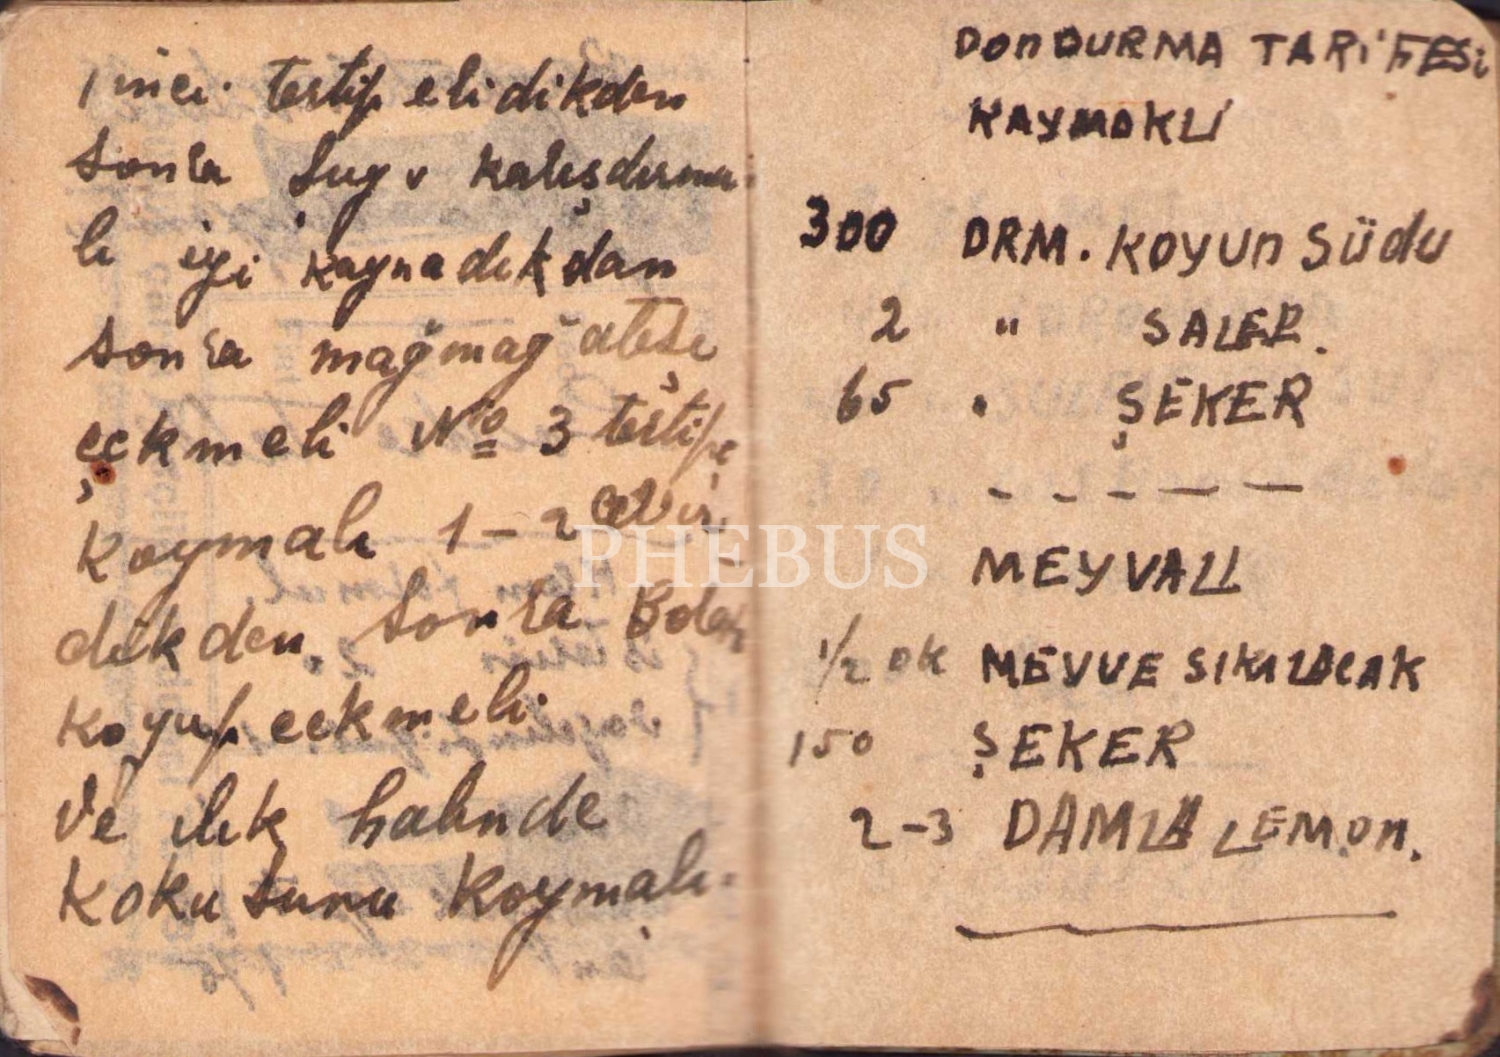 1 inci. tertip elidikden
sonra suyu karışdırma
lı iyi kaynadıkdan
sonra mağmağ ateşe
çekmeli No 3 tertipe
koymalı 1-2
dikden. sonra
koyup çekmeli.
Ve ılık halınde
kokusunu koymalı.
DONDURMA TARİFESİ
KAYMAKLI
300 DRM. KOYUN SÜDU
2 " SALEP.
65 " ŞEKER
- - - - -
MEYVALI
1/2 OK MEYVE SIKILACAK
150 ŞEKER
2-3 DAMLA LEMON.
PHEBUS